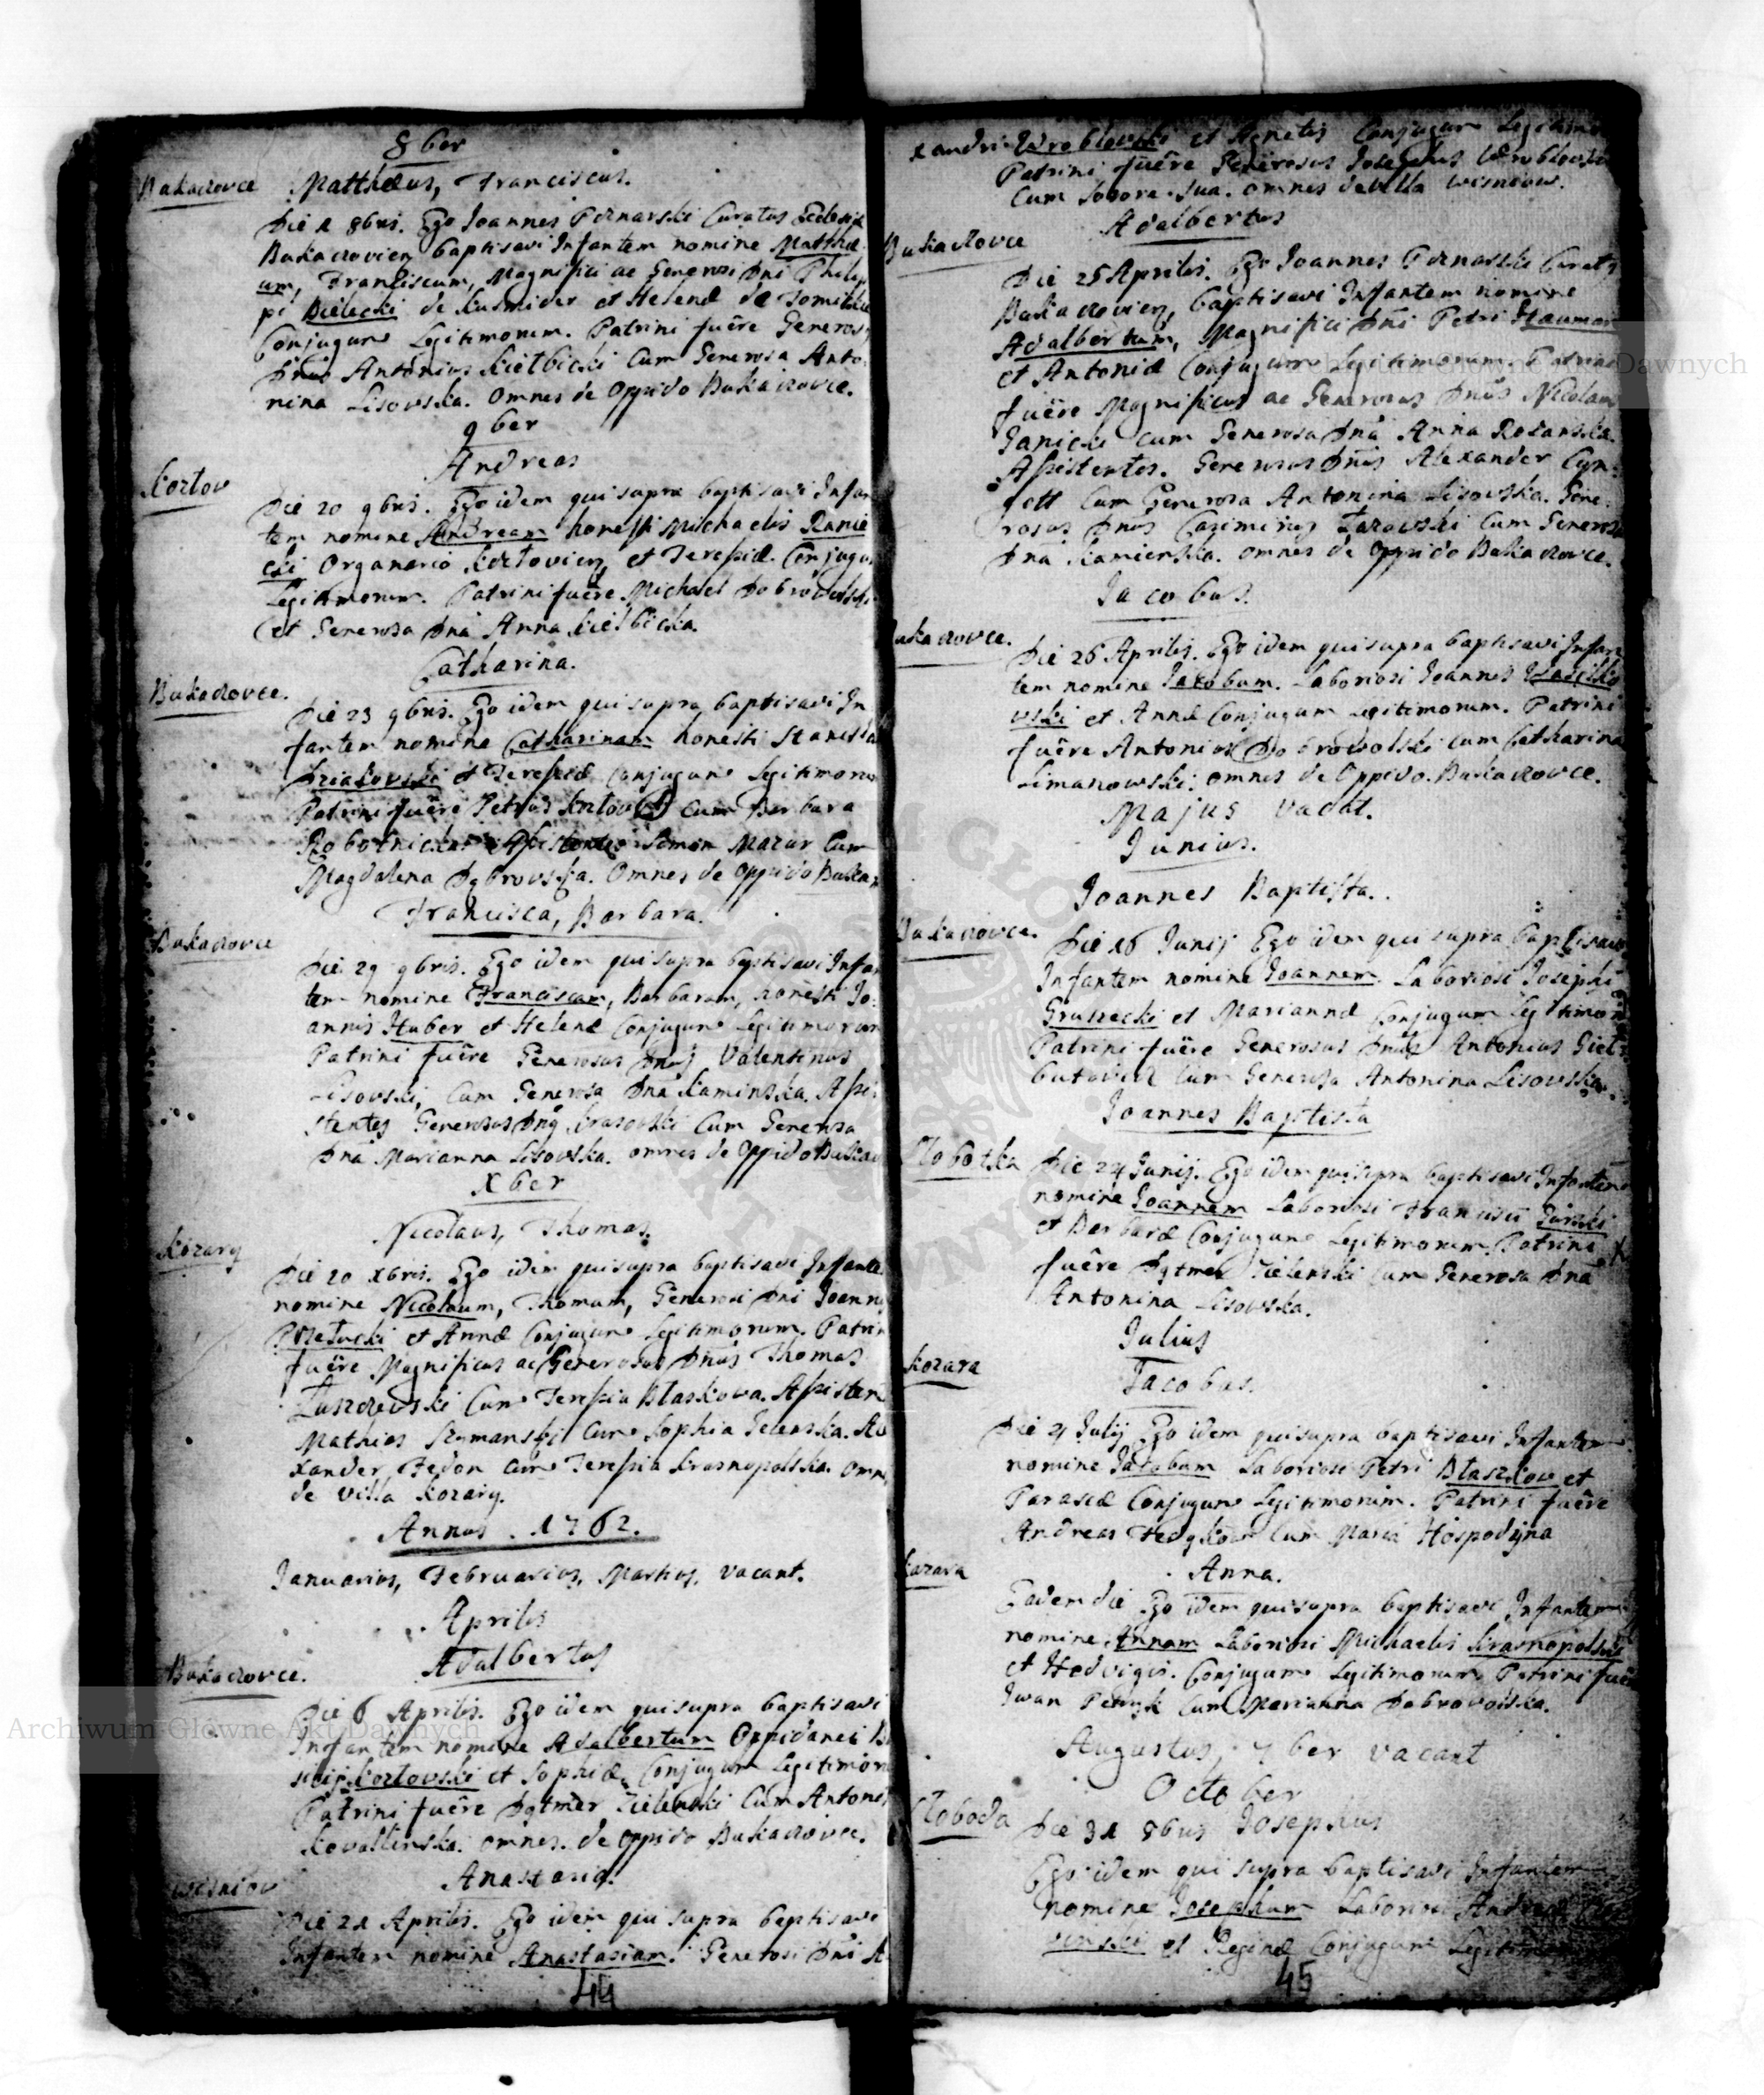 8ber
Bukaczovce Matthæus, Franciscus.
Die 1 8bris. Ego Joannes Pernarski Curatus Ecclesiæ
Bukaczovien, baptisavi Infantem nomine Matthæ
um, Franciscum, Magnifici ac Generosi Dni Philip
pi Bielecki de et Helenæ de
Conjugum Legitimorum. Patrini fuêre Generosus
Dnus Antonius Kiełbicki Cum Generosa Anto
nina Lisowska. Omnes de Oppido Bukaczovce.
9ber
Andreas
Kozłov
Die 20 9bris. Ego idem qui supra baptisavi Infan
tem nomine Andream honesti Michaelis Ranie
cki Organario et Teressiæ Conjugum
Legitimorum. Patrini fuêre Michael Dobrovolski
et Generosa Dna Anna Kiełbicka.
Catharina.
Bukaczovce.
Die 23 9bris. Ego idem qui supra baptisavi In
fantem nomine Catharinam honesti Stanisla
et Teressiæ Conjugum Legitimorum
Patrini fuêre Petrus cum Barbara
Robotnicka Assistentes Simon Mazur Cum
Magdalena Dąbrovska. Omnes de Oppido Bukacz
Francisca, Barbara.
Bukaczovce
Die 29 9bris. Ego idem qui supra baptisavi Infan
tem nomine Franciscam, Barbaram, honesti Jo
annis Huber et Helenæ Conjugum Legitimorum
Patrini fuêre Generosus Dnus Valentinus
Lisovski, Cum Generosa Dna Kaminska. Assi
stentes Generosus Dnus Cum Generosa
Dna Marianna Lisovska. omnes de Oppido Bukacz
Xber
Nicolaus, Thomas.
Kozary
Die 20 Xbris. Ego idem qui supra baptisavi Infantem
nomine Nicolaum, Thomam, Generosi Dni Joannis
Przełucki et Annæ Conjugum Legitimorum. Patrini
fuêre Magnificus ac Generosus Dnus Thomas
Cum Teressia Błaskowa. Assisten
Mathias Szymanski Cum Sophia Jelenska. Ale
xander Fedon cum Teressia Krasnopolska. Omnes
de villa Kozary.
Annus. 1762.
Januarius, Februarius, Martius. vacant.
Aprilis
Adalbertus
Bukaczovce.
Die 6 Aprilis. Ego idem qui supra baptisavi
Infantem nomine Adalbertum Oppidanei Ba
silij Kozłovski et Sophiæ Conjugum Legitimorum
Patrini fuêre Dytmer Zielenski Cum Antonina
Kovallinska. omnes. de Oppido Bukaczovce.
Anastasia.
Wisniov
Die 21 Aprilis. Ego idem qui supra baptisavi
Infantem nomine Anastasiam. Generosi Dni A
44
xandri Wroblewski et Agnetis Conjugum Legitimo
Patrini fuêre Generosus Josephus Wroblowski
Cum Sorore sua. omnes de villa Wisniow.
Adalbertus
Bukaczovce
Die 25 Aprilis. Ego Joannes Pernarski Curatus
Bukaczovien, baptisavi Infantem nomine
Adalbertum, Magnifici Dni Petri
et Antoniæ Conjugum Legitimorum. Patrini
fuêre Magnificus ac Generosus Dnus Nicolaus
Janicki cum Generosa Dna Anna
Assistentes. Generosus Dnus Alexander
Cum Generosa Antonina Lisovska. Gene
rosus Dnus Casimirus Cum Generosa
Dna Kamienska. omnes de Oppido Bukaczovce.
Jacobus.
Bukaczovce.
Die 26 Aprilis. Ego idem qui supra baptisavi Infan
tem nomine Jacobum. Laboriosi Joannis
et Annæ Conjugum Legitimorum. Patrini
fuêre Antonius Dobrowolski cum Catharina
Limanowski. omnes de Oppido. Bukaczovce.
Majus vacat.
Junius.
Joannes Baptista.
Bukaczovce.
Die 16 Junij Ego idem qui supra baptisavi
Infantem nomine Joannem. Laboriosi Josephi
Gruszecki et Mariannæ Conjugum Legitimorum
Patrini fuêre Generosus Dnus Antonius
Cum Generosa Antonina Lisovska.
Joannes Baptista
Słobotka
Die 24 Junij. Ego idem qui supra baptisavi Infantem
nomine Joannem Laboriosi Francisci Gurski
et Barbaræ Conjugum Legitimorum. Patrini
fuêre Dytmer Zielenski cum Generosa Dna
Antonina Lisovska.
Julius
Kozara
Jacobus.
Die 21 Julij Ego idem qui supra baptisavi Infantem
nomine Jacobum Laboriosi Petri Błaszkow et
Parasiæ Conjugum Legitimorum. Patrini fuêre
Andreas Cum Maria Hospodyna
Kozara
Anna.
Eadem die Ego idem qui supra baptisavi Infantem
nomine Annam Laboriosi Michaelis Krasnopolski
et Hedvigis. Conjugum Legitimorum Patrini fuêre
Iwan Petryk Cum Marianna Dobrovolska.
Augustus, 7ber vacant
October
Słoboda Die 31 8bris Josephus
Ego idem qui supra baptisavi Infantem
nomine Josephum Laboriosi Andreæ
et Reginæ Conjugum Legitimorum
45
Archiwum Główne Akt Dawnych